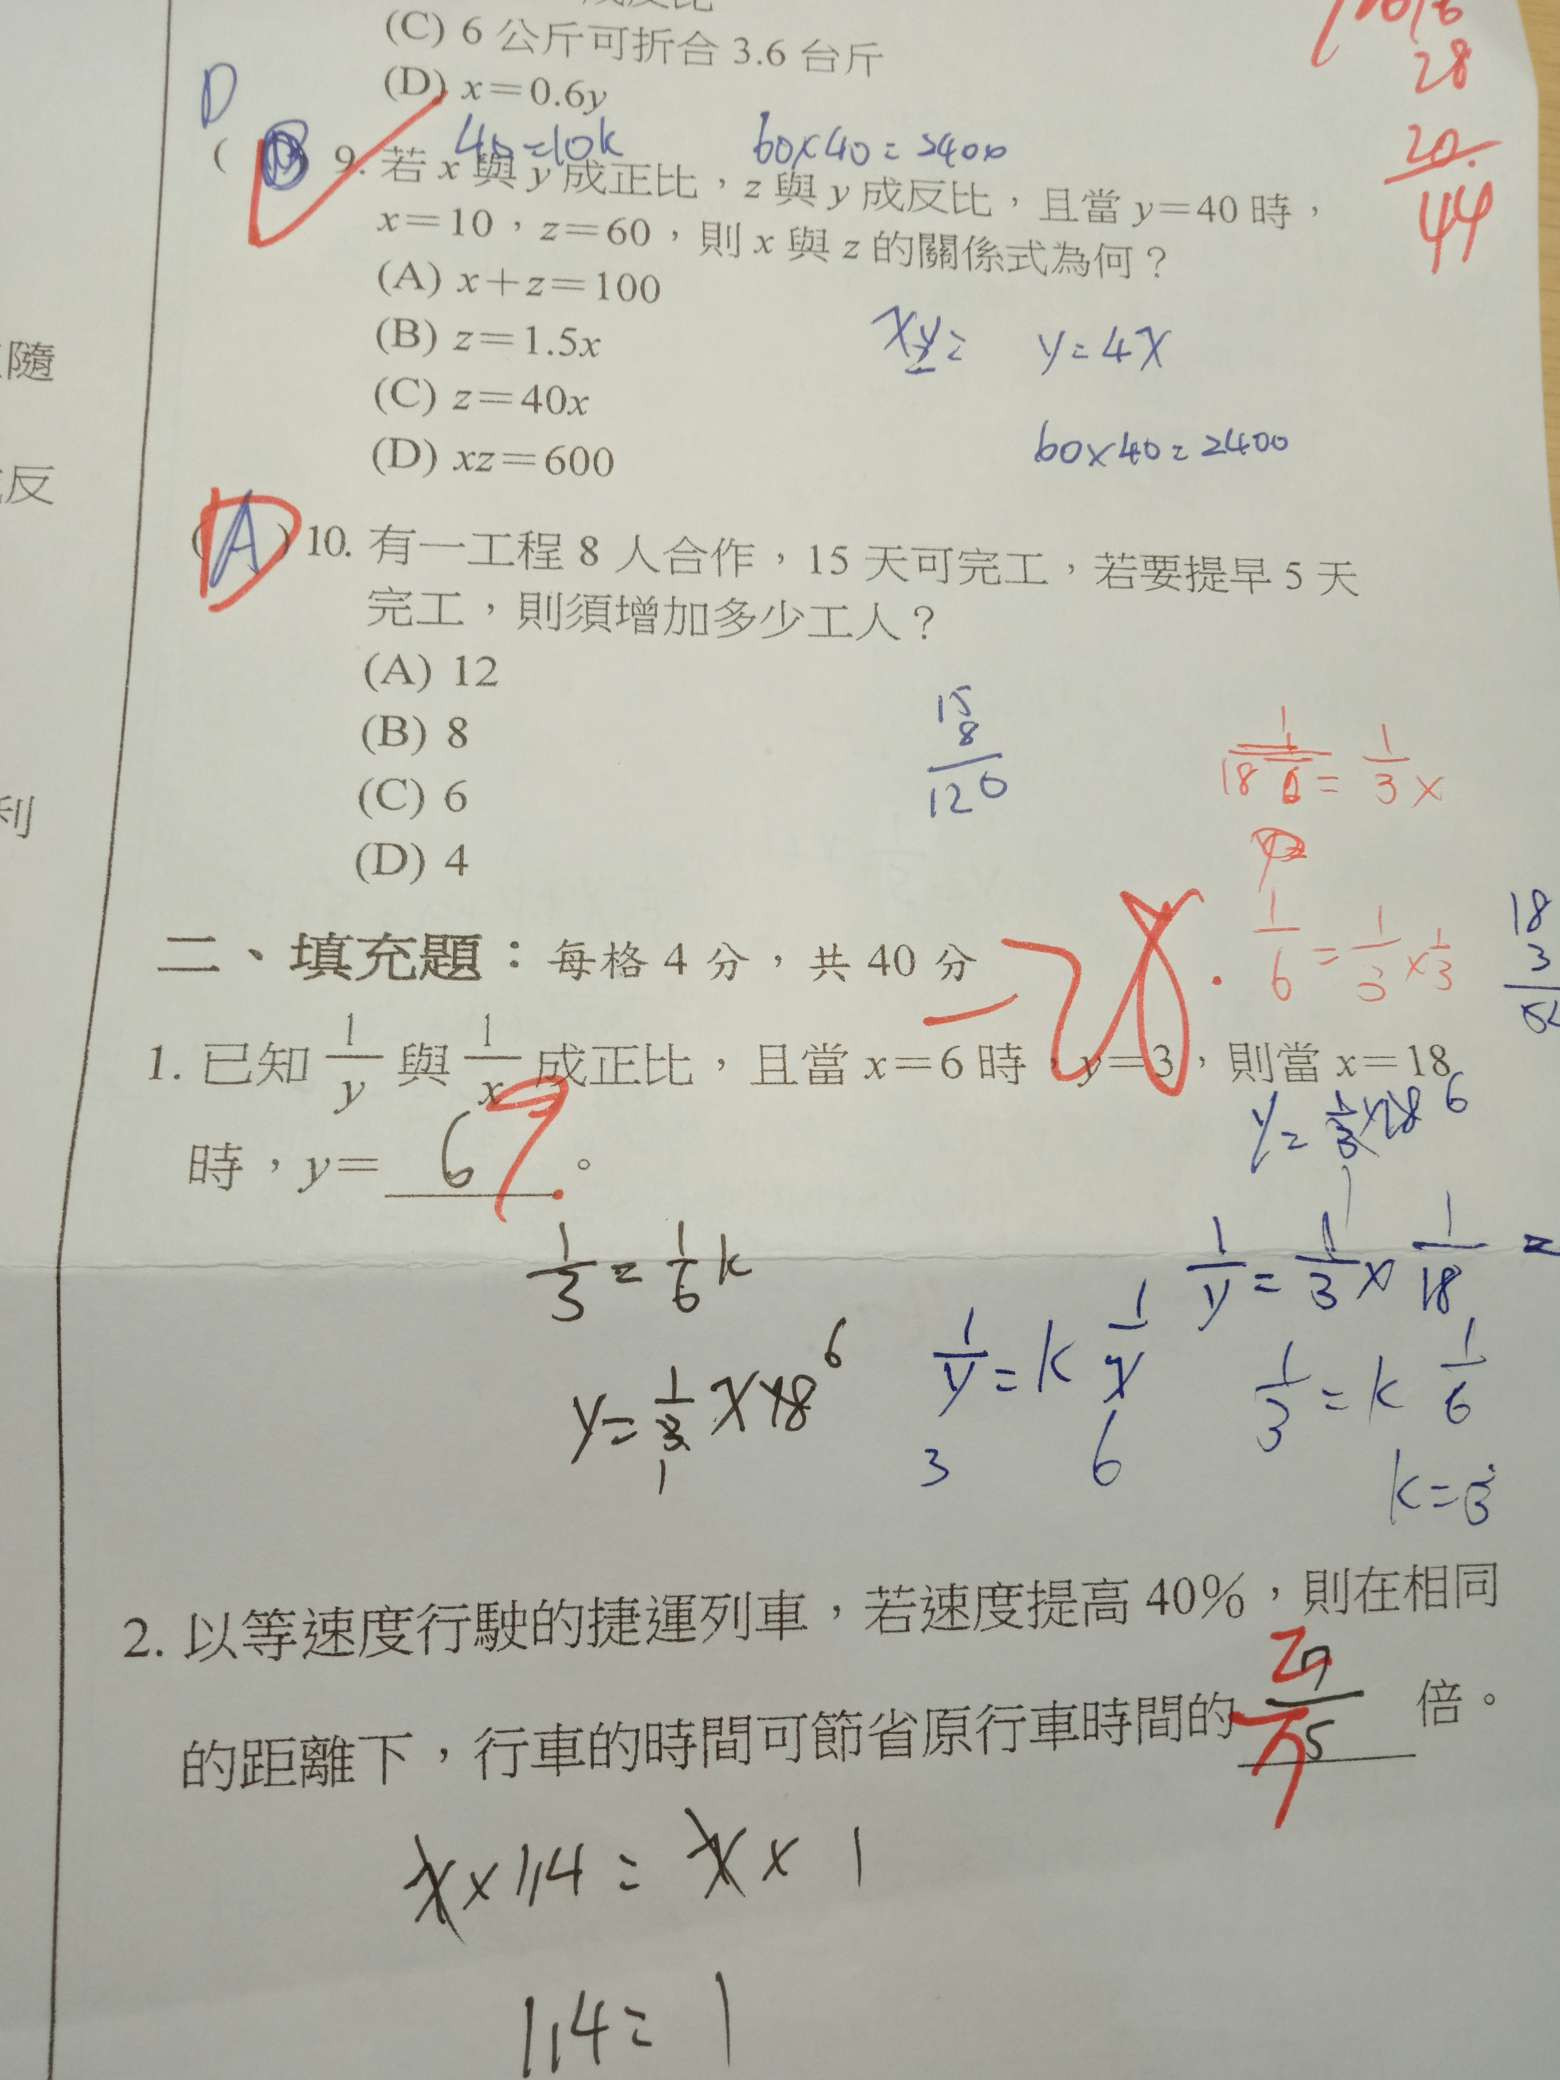 (C) 6 公斤可折合 3.6 台斤
(D) x=0.6y
28
20.
44
D
4 =10k
60×40=2400
9. 若 x 與 y 成正比，z 與 y 成反比，且當 y=40 時，
x=10，z=60，則 x 與 z 的關係式為何？
(A) x+z=100
(B) z=1.5x
(C) z=40x
(D) xz=600
y=4x
60×40=2400
隨
反
利
(A) 10. 有一工程 8 人合作，15 天可完工，若要提早 5 天
完工，則須增加多少工人？
(A) 12
(B) 8
(C) 6
(D) 4
15
8
120
1/6 = 1/3 × 1/3
18
3
二、填充題：每格 4 分，共 40 分
1. 已知 1/y 與 1/x 成正比，且當 x=6 時，y=3，則當 x=18
時，y= 6 。
1/3 = 1/6 k
y= 1/3 × 18 6
1/y = k 1/x
3 6
y= 1/3 ×18 6
1/y = 1/3 × 1/18 =
1/3 = k 1/6
k=3
2. 以等速度行駛的捷運列車，若速度提高 40%，則在相同
的距離下，行車的時間可節省原行車時間的 7/5 倍。
2/7
x×1.4= x×1
1.4=1